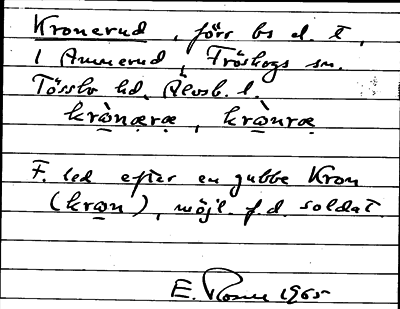 Kronerud, förr bs o. t,
l Ammerud, Fröskogs sn.
Tössbo hd, Älvsb. l.
krònæræ, krònræ
F. led efter en gubbe Kron
(kron), möjl. f.d. soldat
E. Rosen 1965